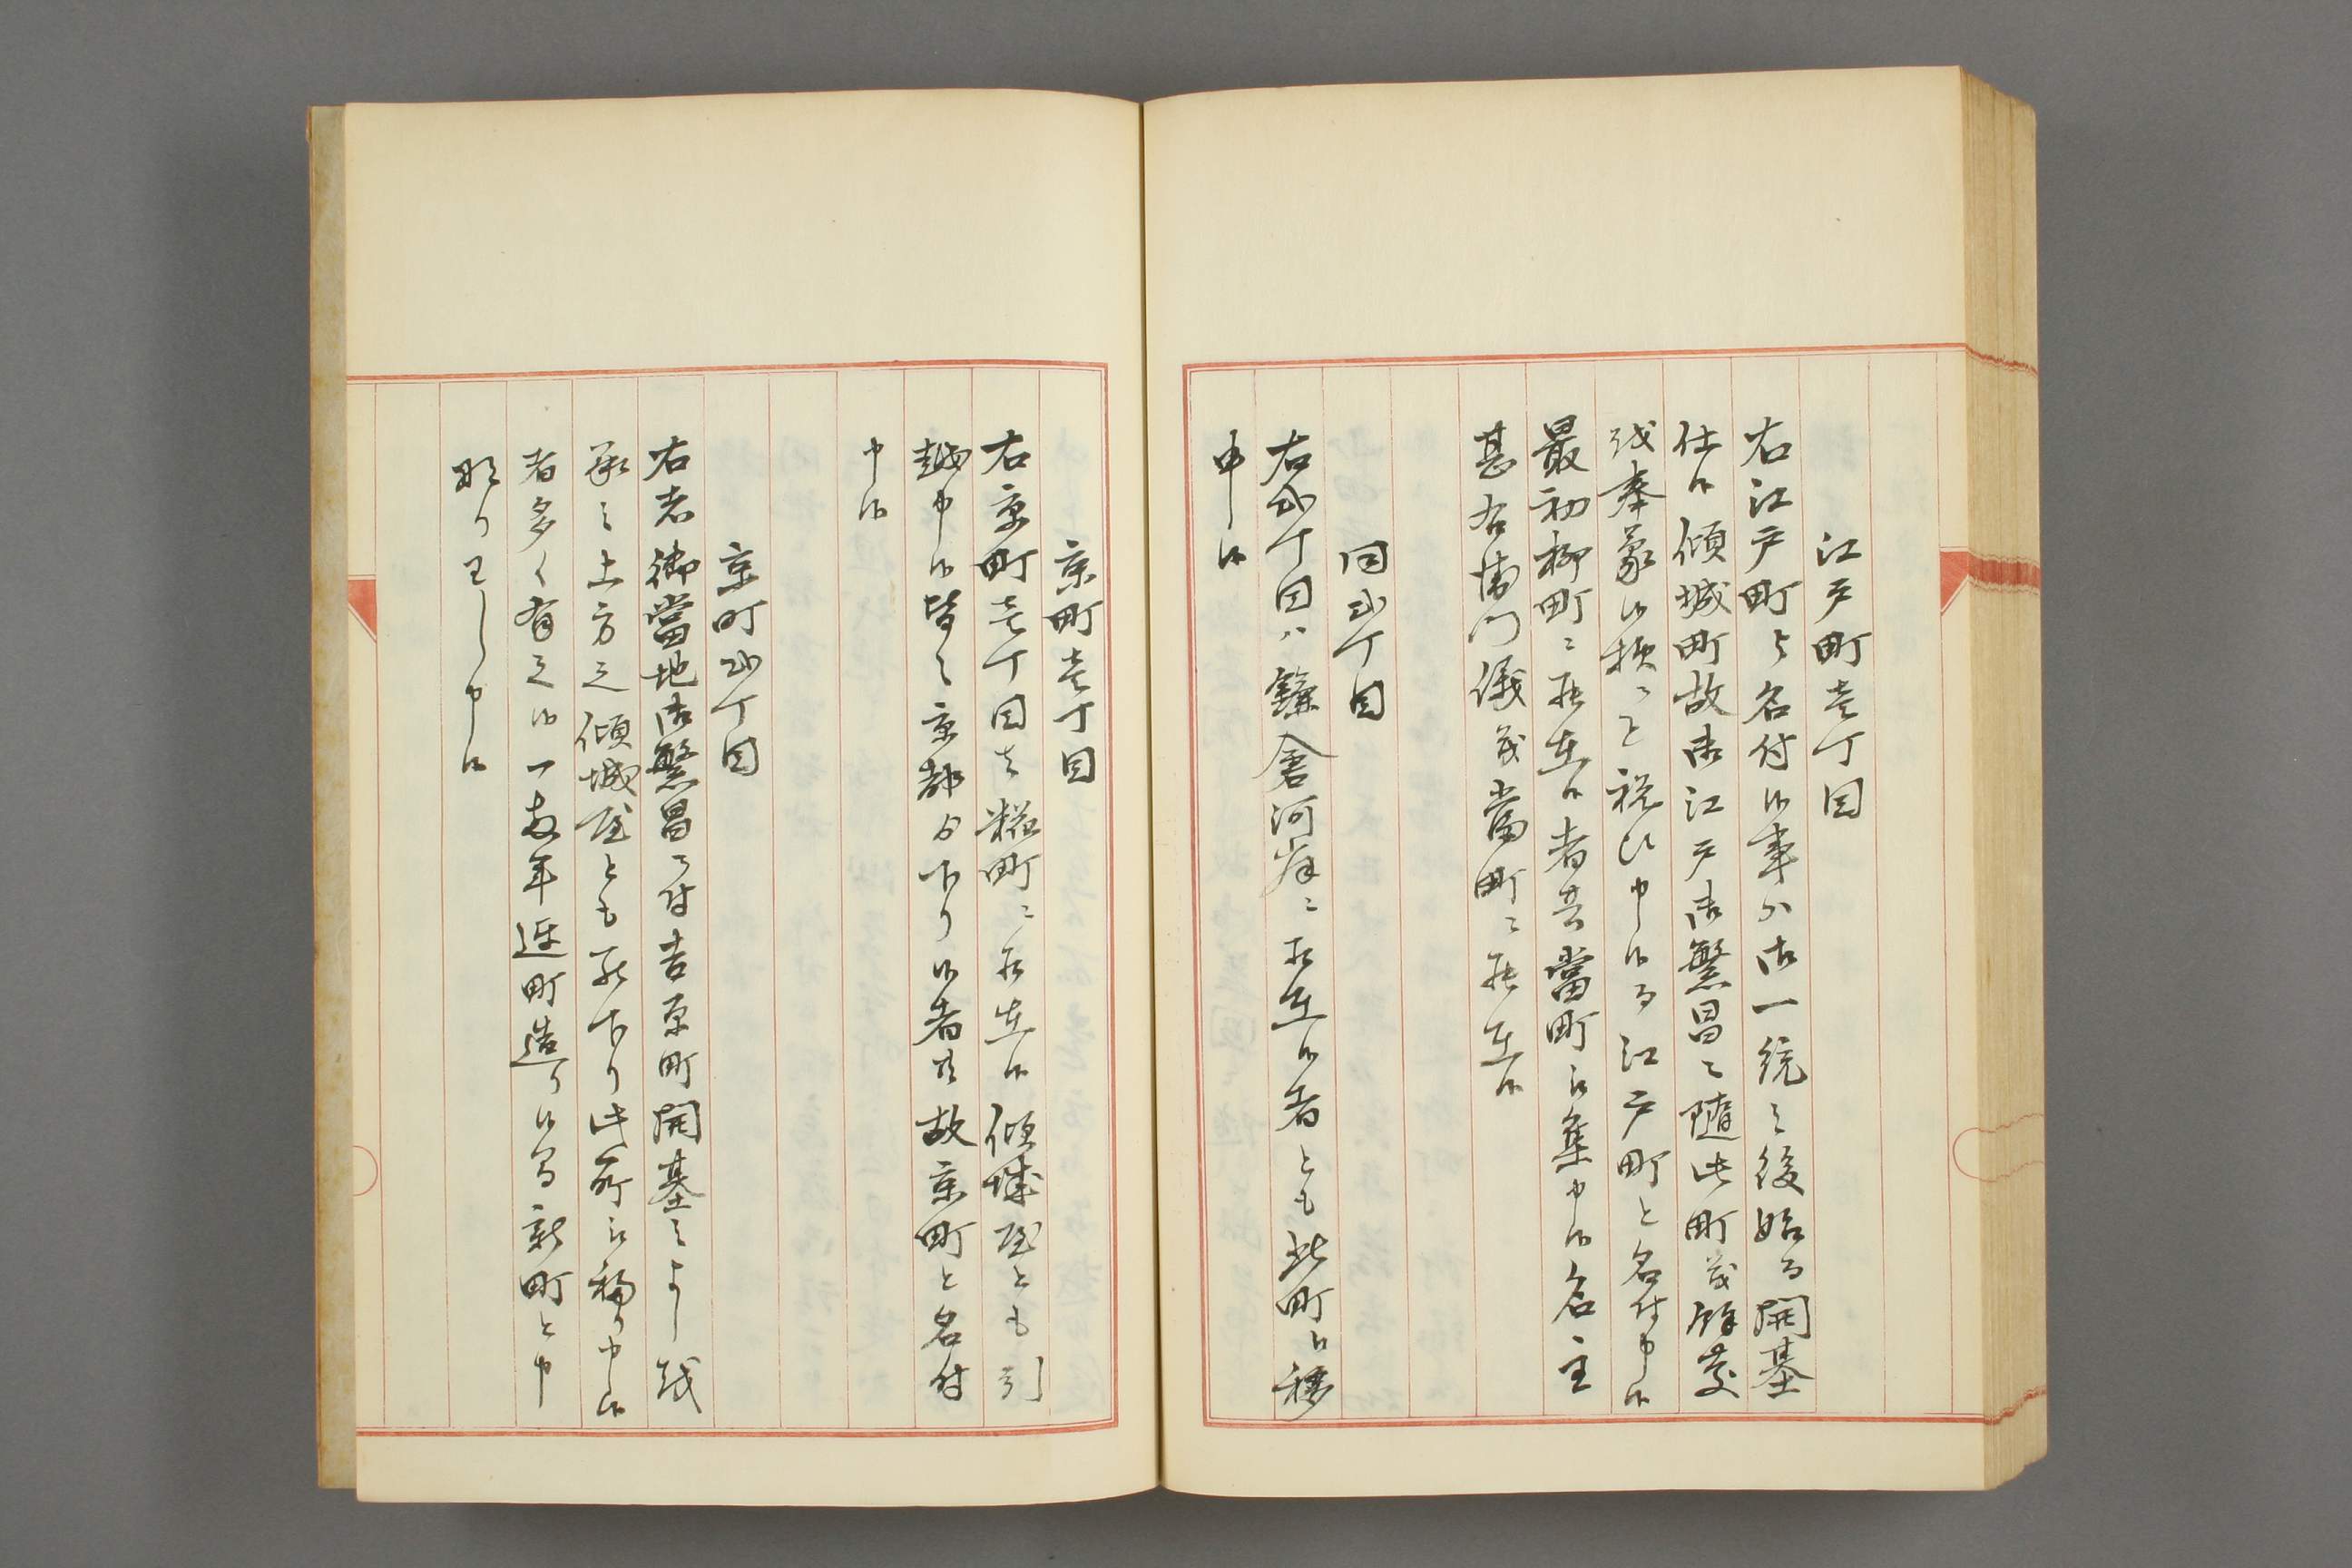 江戸町壱丁目
右江戸町と名付候事ハ御一統之後始る開基
仕候傾城町故御江戸御繁昌ニ随此町茂餘慶
越奉蒙候様ニと祝ひ申候而江戸町と名付申候
最初柳町ニ罷在候者共當町江集申候名主
甚右衛門儀茂當町ニ罷在候
同弐丁目
右弐丁目ハ鎌倉河岸ニ罷在候者とも此町江移
申候
京町壱丁目
右京町壱丁目者糀町ニ罷在候傾城屋とも引
越申候皆々京都ゟ下り候者共故京町と名付
申候
京町弐丁目
右者御當地御繁昌ニ付吉原町開基之よし越
承之上方之傾城屋とも罷下り此所江移り申候
者多く有之候一両年遅町造り候間新町と申
ならわし申候